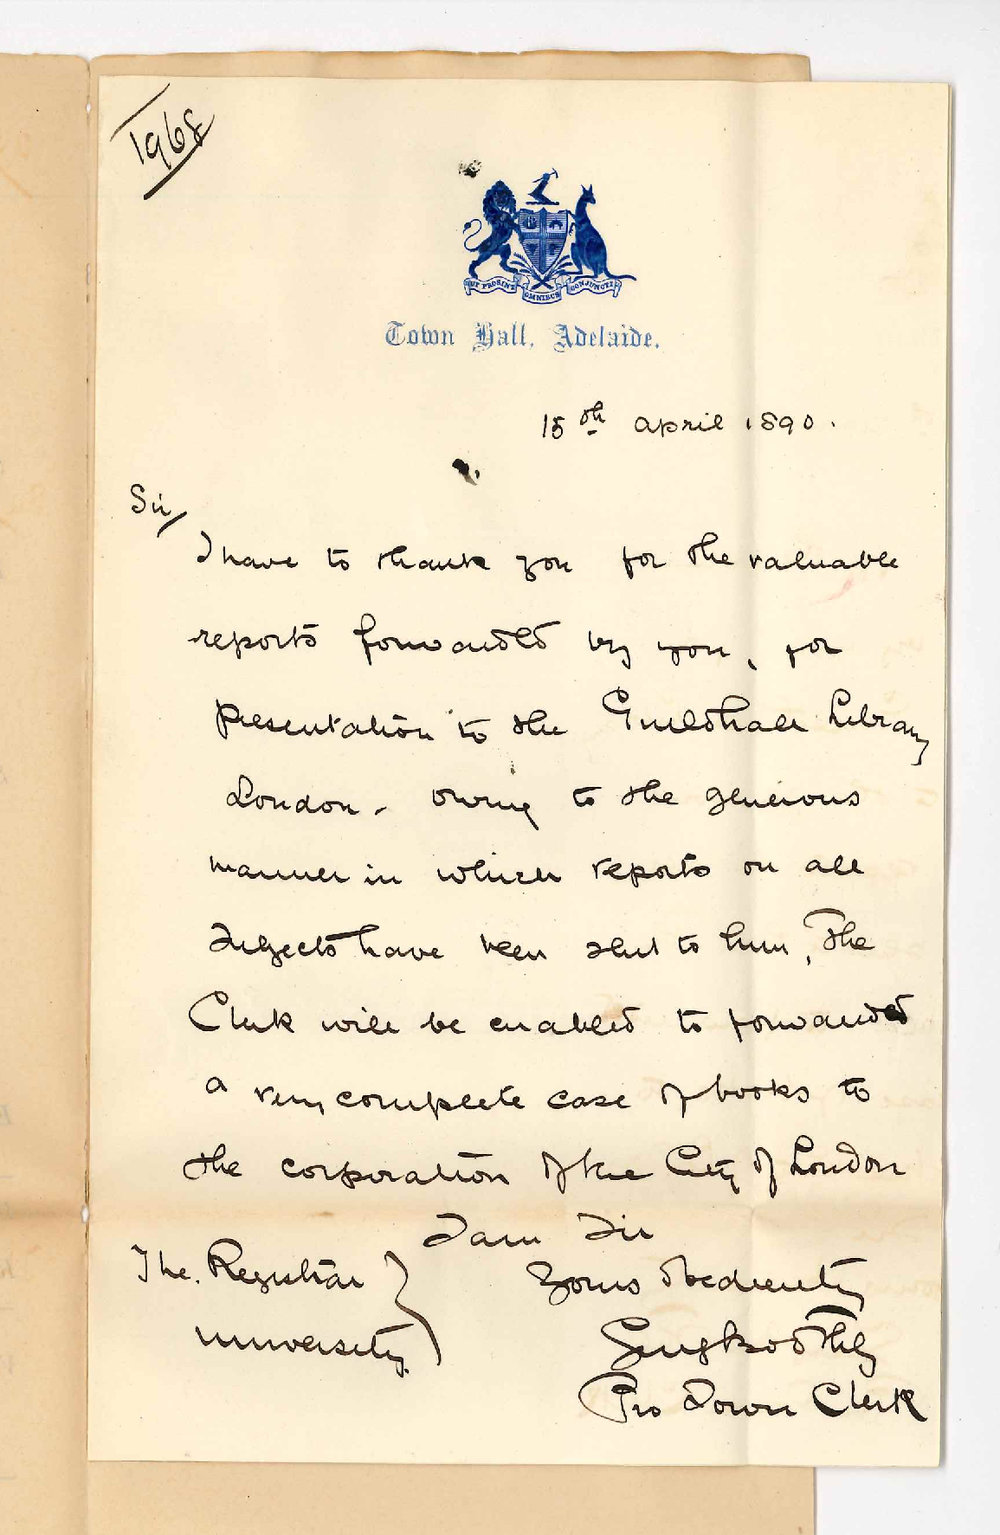 1968
UT PROSINT OMNIBUS CONJUNCTI
Town Hall, Adelaide.
15th April 1890.
Sir/
I have to thank you for the valuable
reports forwarded by you, for
presentation to the Guildhall Library
London. Owing to the generous
manner in which reports on all
subjects have been sent to him, The
Clerk will be enabled to forward
a very complete case of books to
the corporation of the City of London
I am Sir
Yours obediently
Pro Town Clerk
The Registrar
University